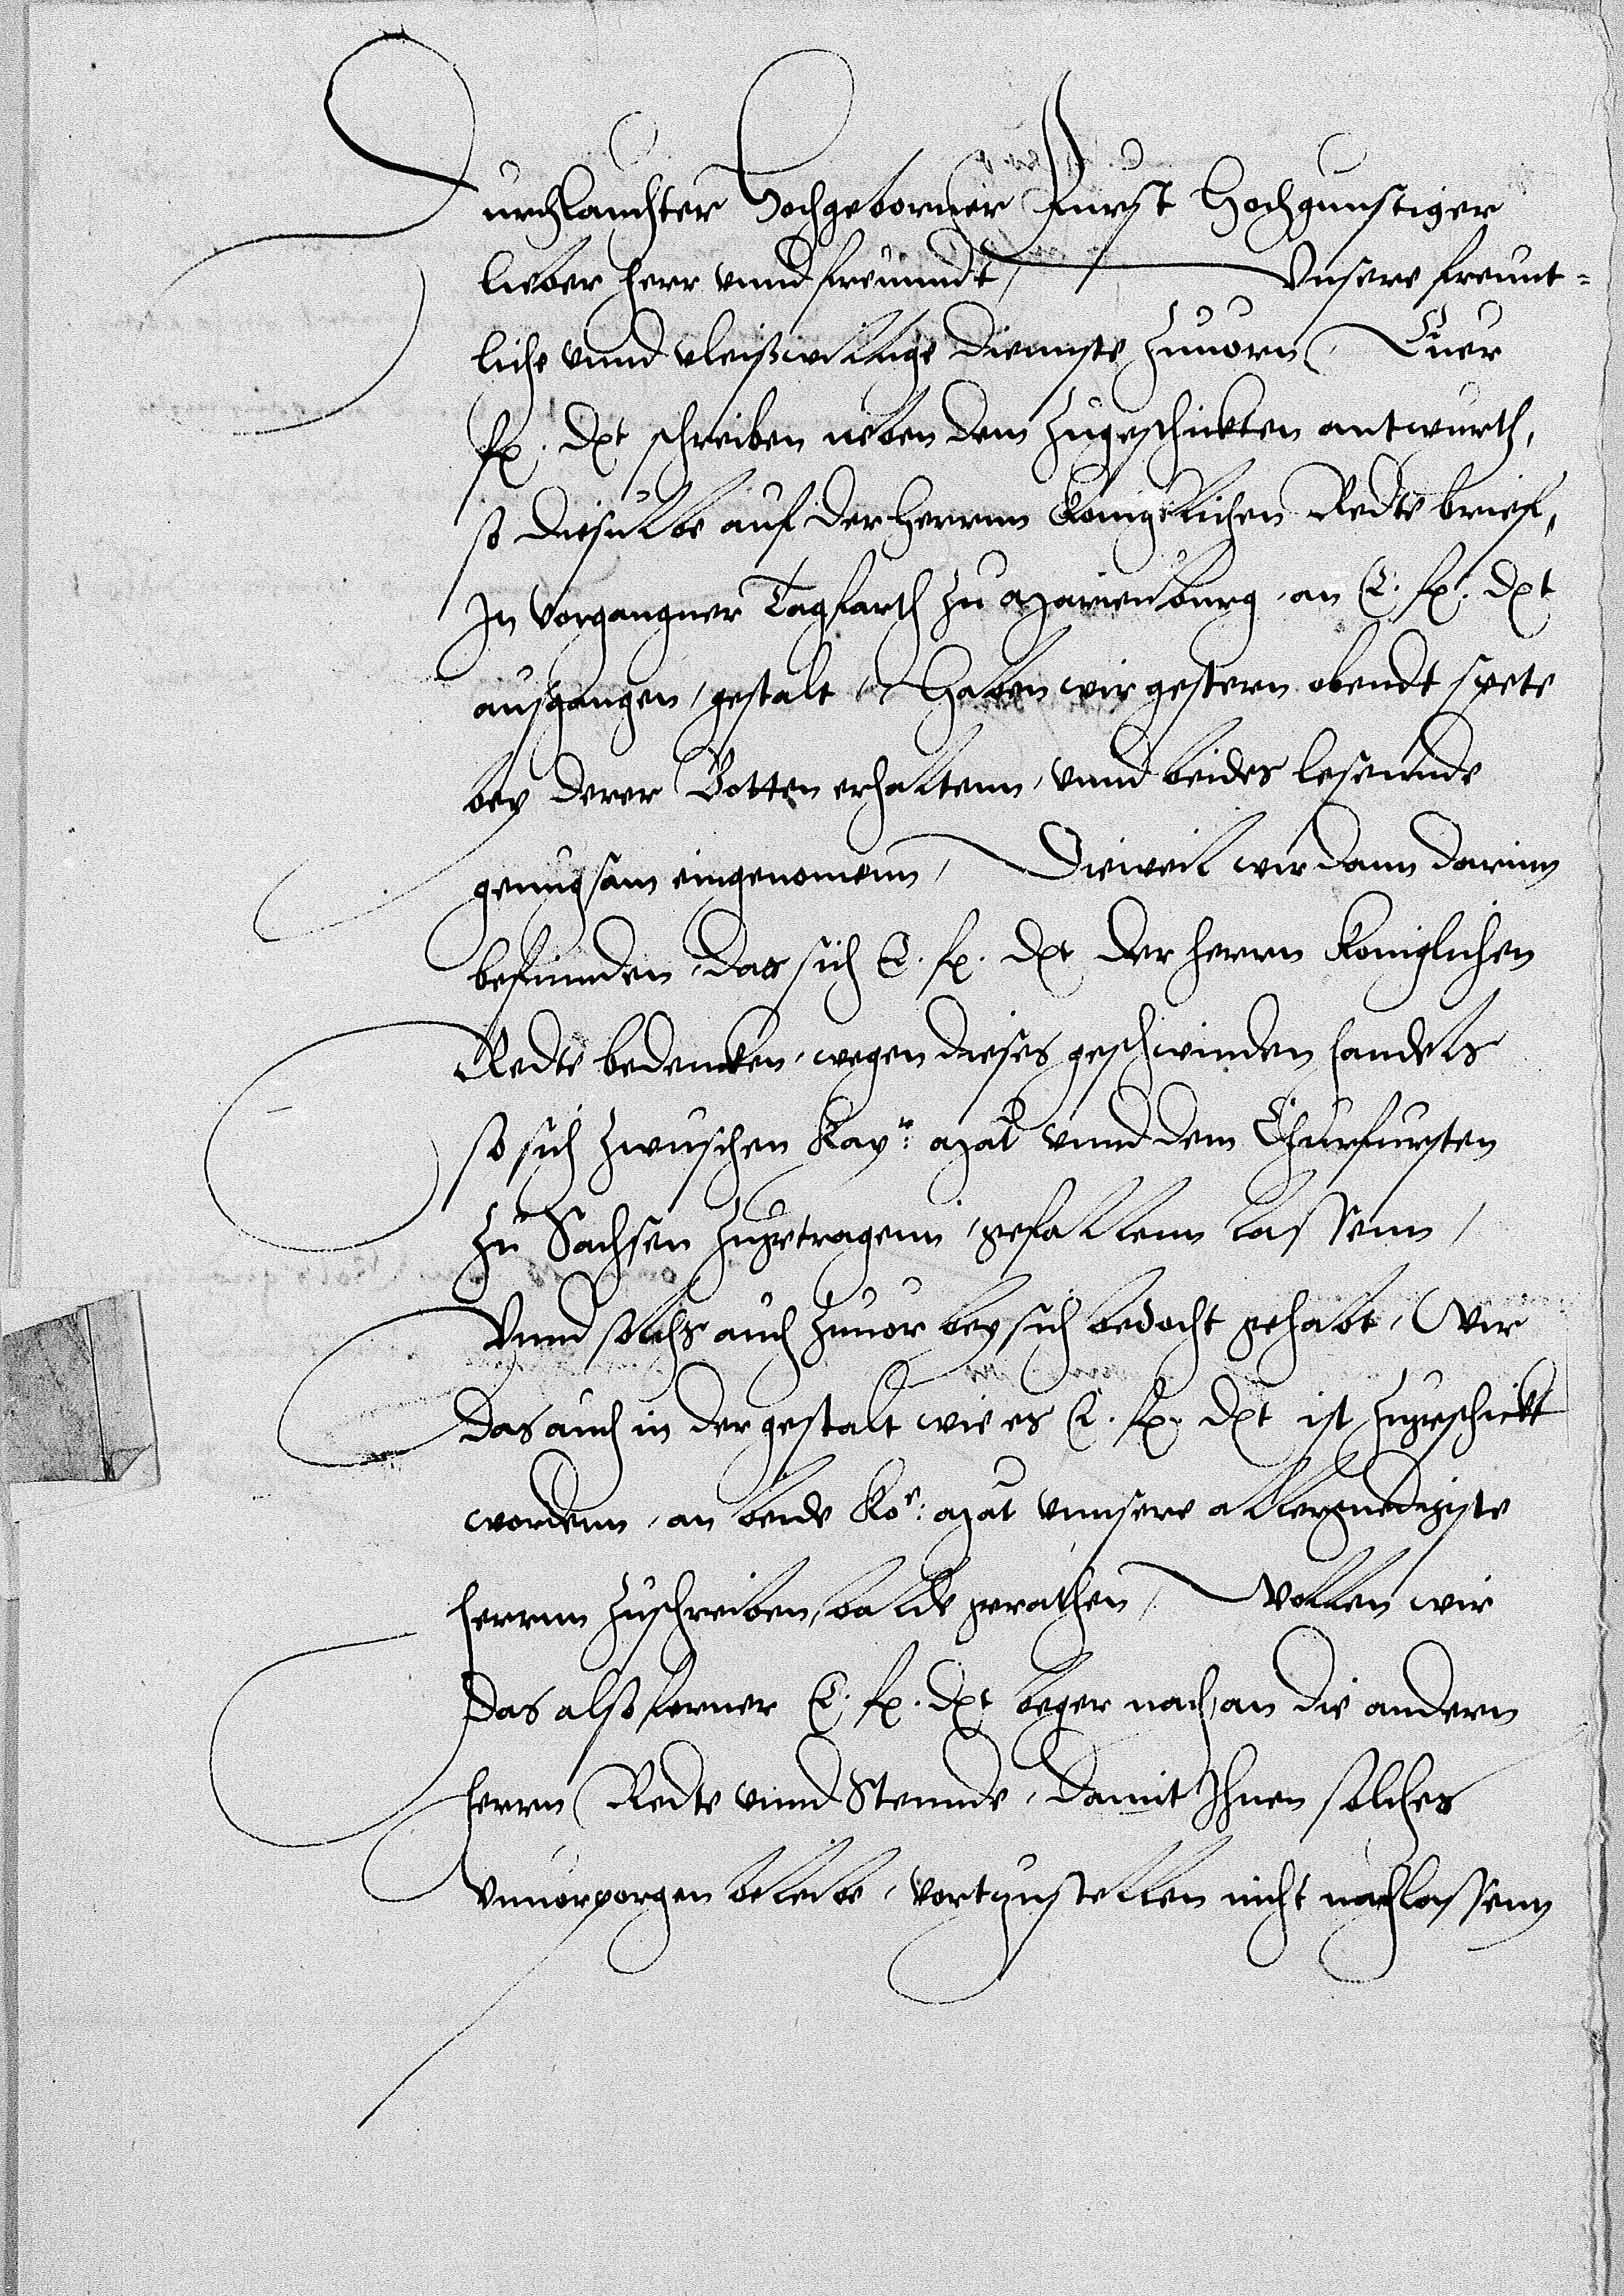 Durchlauchter Hochgeborner Furst Hochgunstiger
lieber Herr vnnd freundt, Vnsere freunt-
liche vnnd vleißwillige Diennste zuuorn, Euer
fr. dt schreiben neben dem zugeschickten antwurth,
so dieselbe auf der Herrnn Konigklichen Redte brief,
In vorgangner Tagfarth zu Marienburg, an E. fr. dt
ausgangen, gestalt, Haben wir gestern abendt spete
bey derer Botten erhaltenn, vnnd beides lesennde
genugsam eingenomenn, Dieweil wir dann darinn
befunnden, das sich E. fr. dt der herrn Koniglichen
Redte bedencken, wegen dieses geschwinden handels
so sich zwuschen Kayr: Mat vnnd dem Churfursten
zu Sachsen zugetragenn, gefallenn lassenn,
Vnnd solchs auch zuuor bey sich bedacht gehabt, Wir
das auch in der gestalt wie es E. fr. dt ist zugeschickt
wordenn, an beide Kor: Mat vnnsere allergnedigiste
herrnn zuschreiben, balde gerathen, Wollen wir
das also ferner E. fr. dt beger nach, an die andern
herrn Redte vnnd Stennde, damit Ihnen solches
vnuorporgen beleibe, vortzustellen nicht nachlassenn